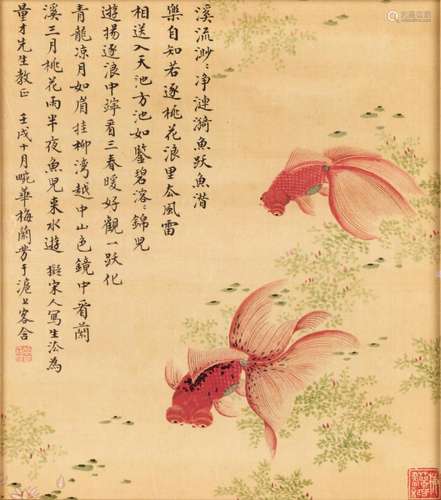 溪流渺渺淨漣漪魚躍魚潛
樂自知若逐桃花浪里去風雷
相送入天池方池如鑒碧溶溶錦兒
遊揚逐浪中濘看三春暖好觀一躍化
青龍凉月如眉挂柳灣越中山色鏡中看蘭
溪三月桃花雨半夜魚兒來水遊 擬宋人寫生法為
量才先生教正 壬戌十月畹華梅蘭芳于滬上客舍